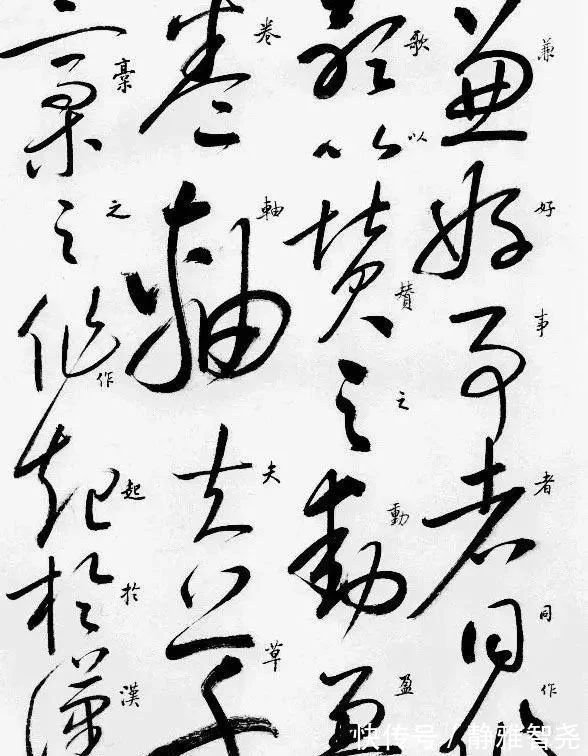 兼好事者同作
歌以賛之動盈
卷軸夫草
稾之作起於漢
快传号／静雅智尧